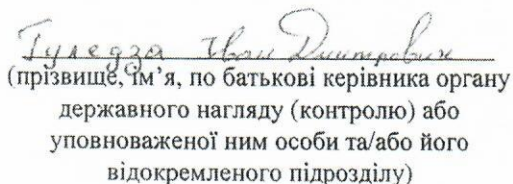 Туледза Іван Дмитрович
(прізвище, ім’я, по батькові керівника органу
державного нагляду (контролю) або
уповноваженої ним особи та/або його
відокремленого підрозділу)